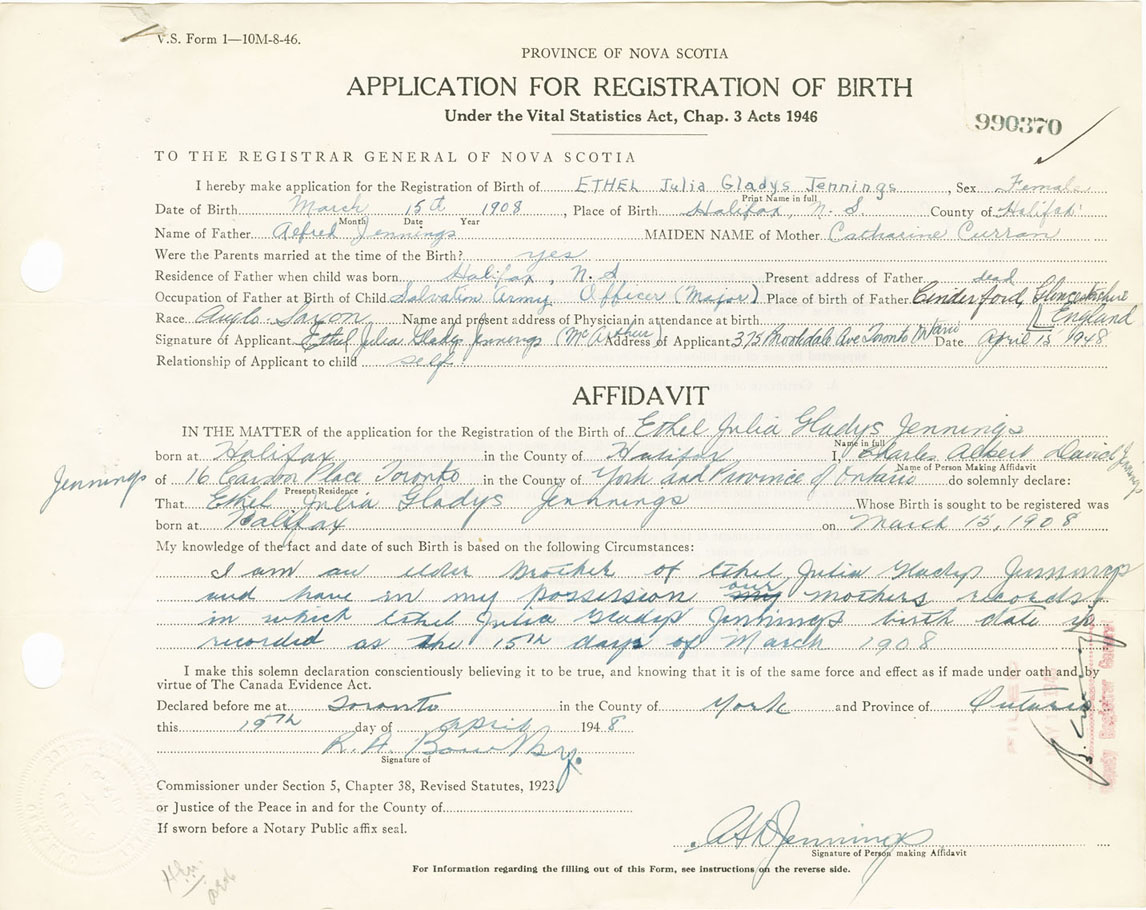 V.S. Form 1—10M-8-46.
PROVINCE OF NOVA SCOTIA
APPLICATION FOR REGISTRATION OF BIRTH
Under the Vital Statistics Act, Chap. 3 Acts 1946
990370
TO THE REGISTRAR GENERAL OF NOVA SCOTIA
I hereby make application for the Registration of Birth of ETHEL Julia Gladys Jennings, Sex Female
Print Name in full
Date of Birth March 15th 1908, Place of Birth Halifax, N. S County of Halifax
Month Date Year
Name of Father Alfred Jennings MAIDEN NAME of Mother Catharine Curran
Were the Parents married at the time of the Birth? yes
Residence of Father when child was born Halifax, N. S Present address of Father dead
Occupation of Father at Birth of Child Salvation Army Officer (Major) Place of birth of Father Cinderford, Gloucestshire
England
Race Anglo-Saxon Name and present address of Physician in attendance at birth
Signature of Applicant Ethel Julia Gladys Jennings (McArthur) Address of Applicant 375 Brookdale Ave Toronto Ontario Date April 15 1948
Relationship of Applicant to child self
AFFIDAVIT
IN THE MATTER of the application for the Registration of the Birth of Ethel Julia Gladys Jennings
Name in full
born at Halifax in the County of Halifax I, Charles Albert David Jennings
Name of Person Making Affidavit
Jennings of 16 Carson Place Toronto in the County of York and Province of Ontario do solemnly declare:
Present Residence
That Ethel Julia Gladys Jennings Whose Birth is sought to be registered was
born at Halifax on March 15, 1908
My knowledge of the fact and date of such Birth is based on the following Circumstances:
I am an elder brother of Ethel Julia Gladys Jennings
and have in my possession our mothers records
in which Ethel Julia Gladys Jennings birth date is
recorded as the 15th day of March 1908
I make this solemn declaration conscientiously believing it to be true, and knowing that it is of the same force and effect as if made under oath and by
virtue of The Canada Evidence Act.
Declared before me at Toronto in the County of York and Province of Ontario
this 19th day of April 1948
R. A.
Signature of
Commissioner under Section 5, Chapter 38, Revised Statutes, 1923,
or Justice of the Peace in and for the County of
If sworn before a Notary Public affix seal.
Jennings
Signature of Person making Affidavit
For Information regarding the filling out of this Form, see instructions on the reverse side.